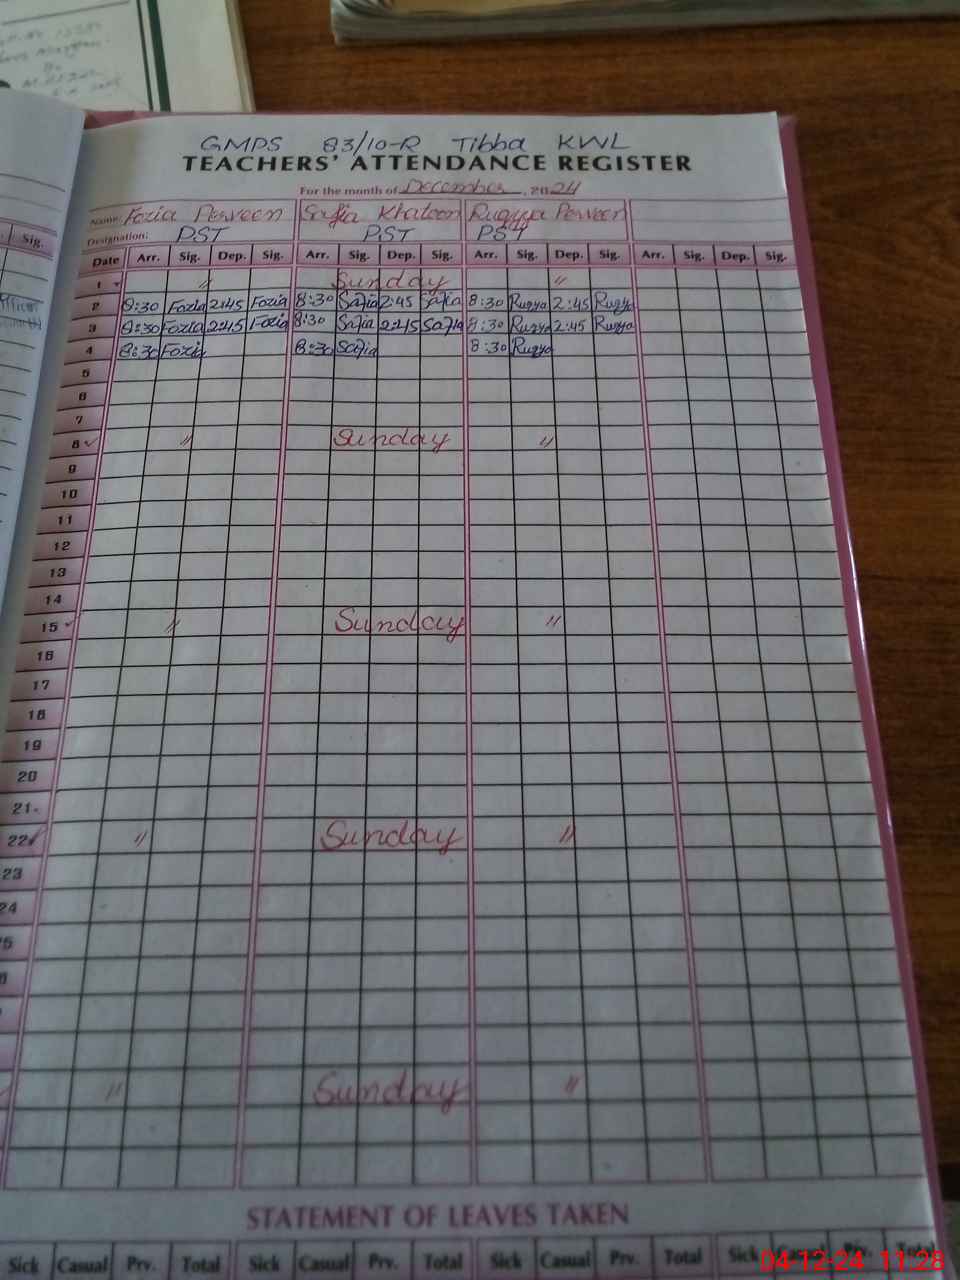 Sig.
GMPS 83/10-R Tibba KWL
TEACHERS' ATTENDANCE REGISTER
For the month of December, 2024
Name: Fozia Perveen Safia Khatoon Ruqyya Perveen
Designation: PST PST PST
Date Arr. Sig. Dep. Sig. Arr. Sig. Dep. Sig. Arr. Sig. Dep. Sig. Arr. Sig. Dep. Sig.
1 " Sunday "
2 8:30 Fozia 2:45 Fozia 8:30 Safia 2:45 Safia 8:30 Ruqya 2:45 Ruqya
3 8:30 Fozia 2:45 Fozia 8:30 Safia 2:45 Safia 8:30 Ruqya 2:45 Ruqya
4 8:30 Fozia 8:30 Safia 8:30 Ruqya
5
6
7
8 " Sunday "
9
10
11
12
13
14
15 " Sunday "
16
17
18
19
20
21
22 " Sunday "
23
24
" Sunday "
STATEMENT OF LEAVES TAKEN
Sick Casual Prv. Total Sick Casual Prv. Total Sick Casual Prv. Total Sick Casual Prv. Total
04-12-24 11:28